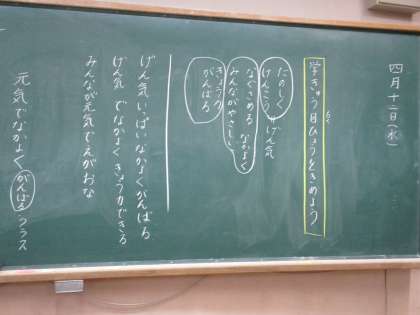 四月十二日(水)
学きゅう目ひょうをきめよう
たのしく
けんこう
げん気
なぐさめる なかよく
みんながやさしい
きょうりょく
がんばる
げん気いっぱいなかよくがんばる
げん気 でなかよく きょう力できる
みんなが元気でえがおな
元気でなかよくがんばるクラス